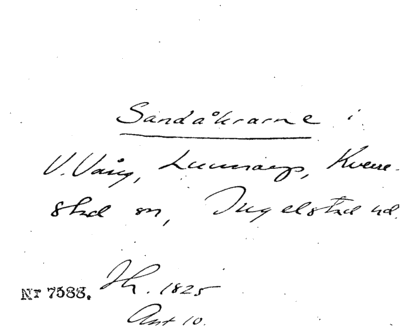 Sandåkrarne i
V. Vång, Lunnarps, Kverre-
stad sn, Ingelstad hd.
Nr 7583. Th. 1825
Ant 10.